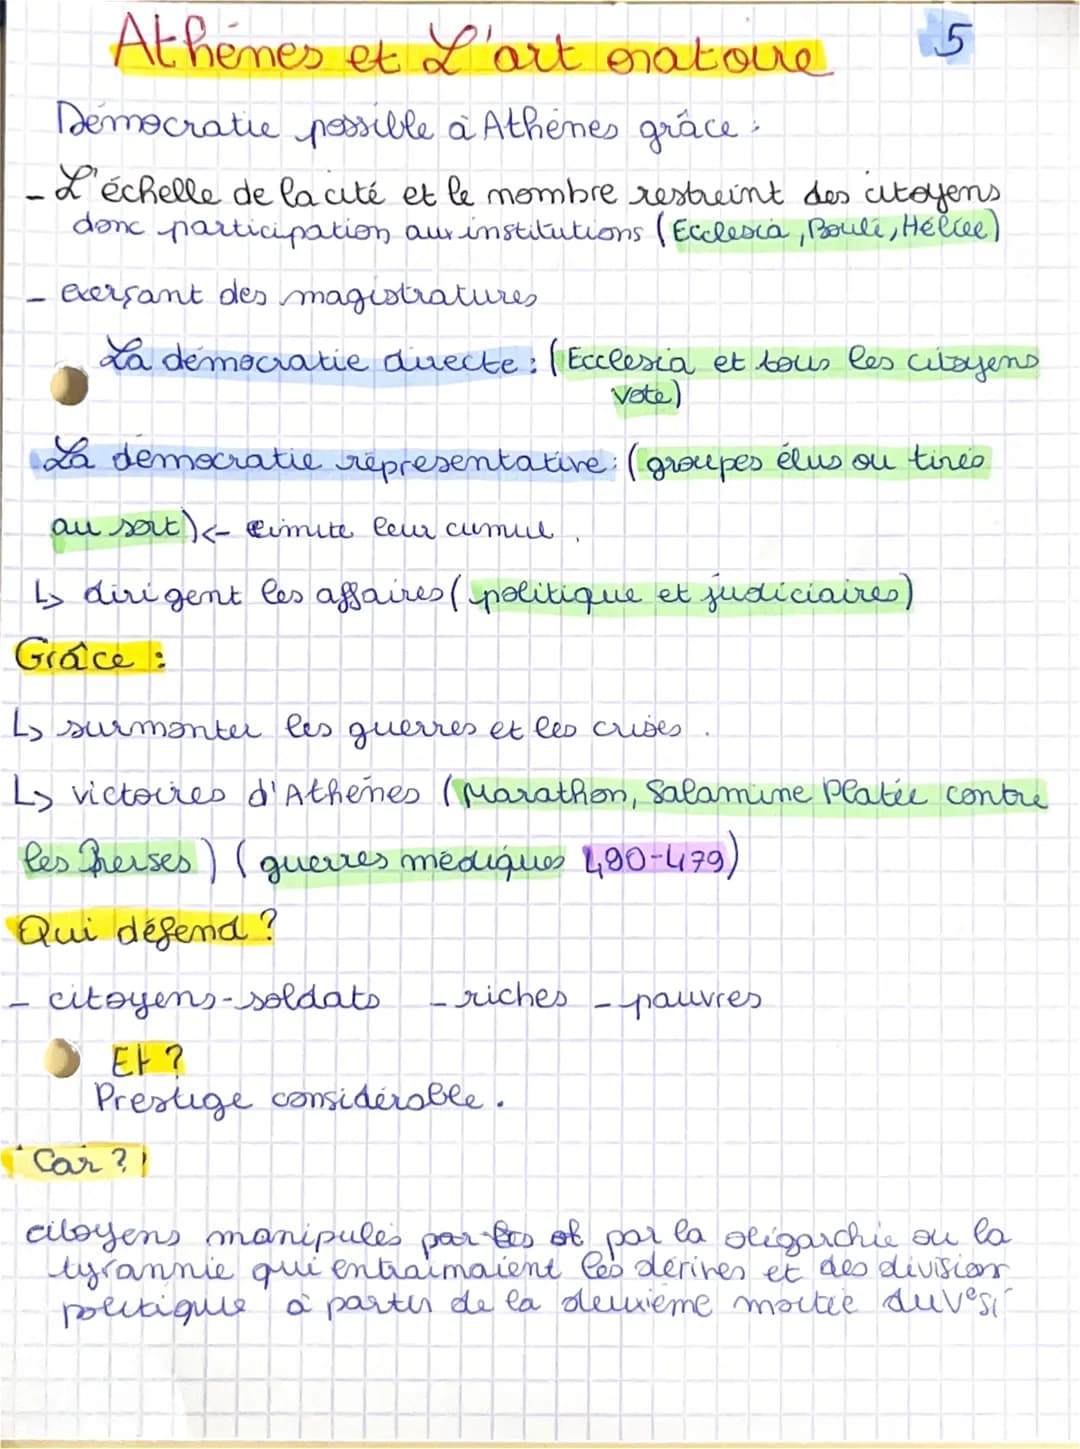 Athènes et L'art oratoire 5
Démocratie possible à Athènes grâce :
- L'échelle de la cité et le nombre restreint des citoyens
donc participation aux institutions (Ecclesia, Boulè, Héliée)
- exerçant des magistratures
La démocratie directe : (Ecclesia et tous les citoyens
vote)
La démocratie représentative : (groupes élus ou tirés
au sort) <- limite leur cumul.
↳ dirigent les affaires (politique et judiciaires)
Grâce :
↳ surmonter les guerres et les crises.
↳ victoires d'Athènes (Marathon, Salamine Platée contre
les Perses) (guerres médiques 490-479)
Qui défend ?
- citoyens-soldats - riches - pauvres
Et ?
Prestige considérable.
Car ?
citoyens manipulés par la oligarchie ou la
tyrannie qui entraimaient les dérives et des division
politique à partir de la deuxième moitié du Ve si